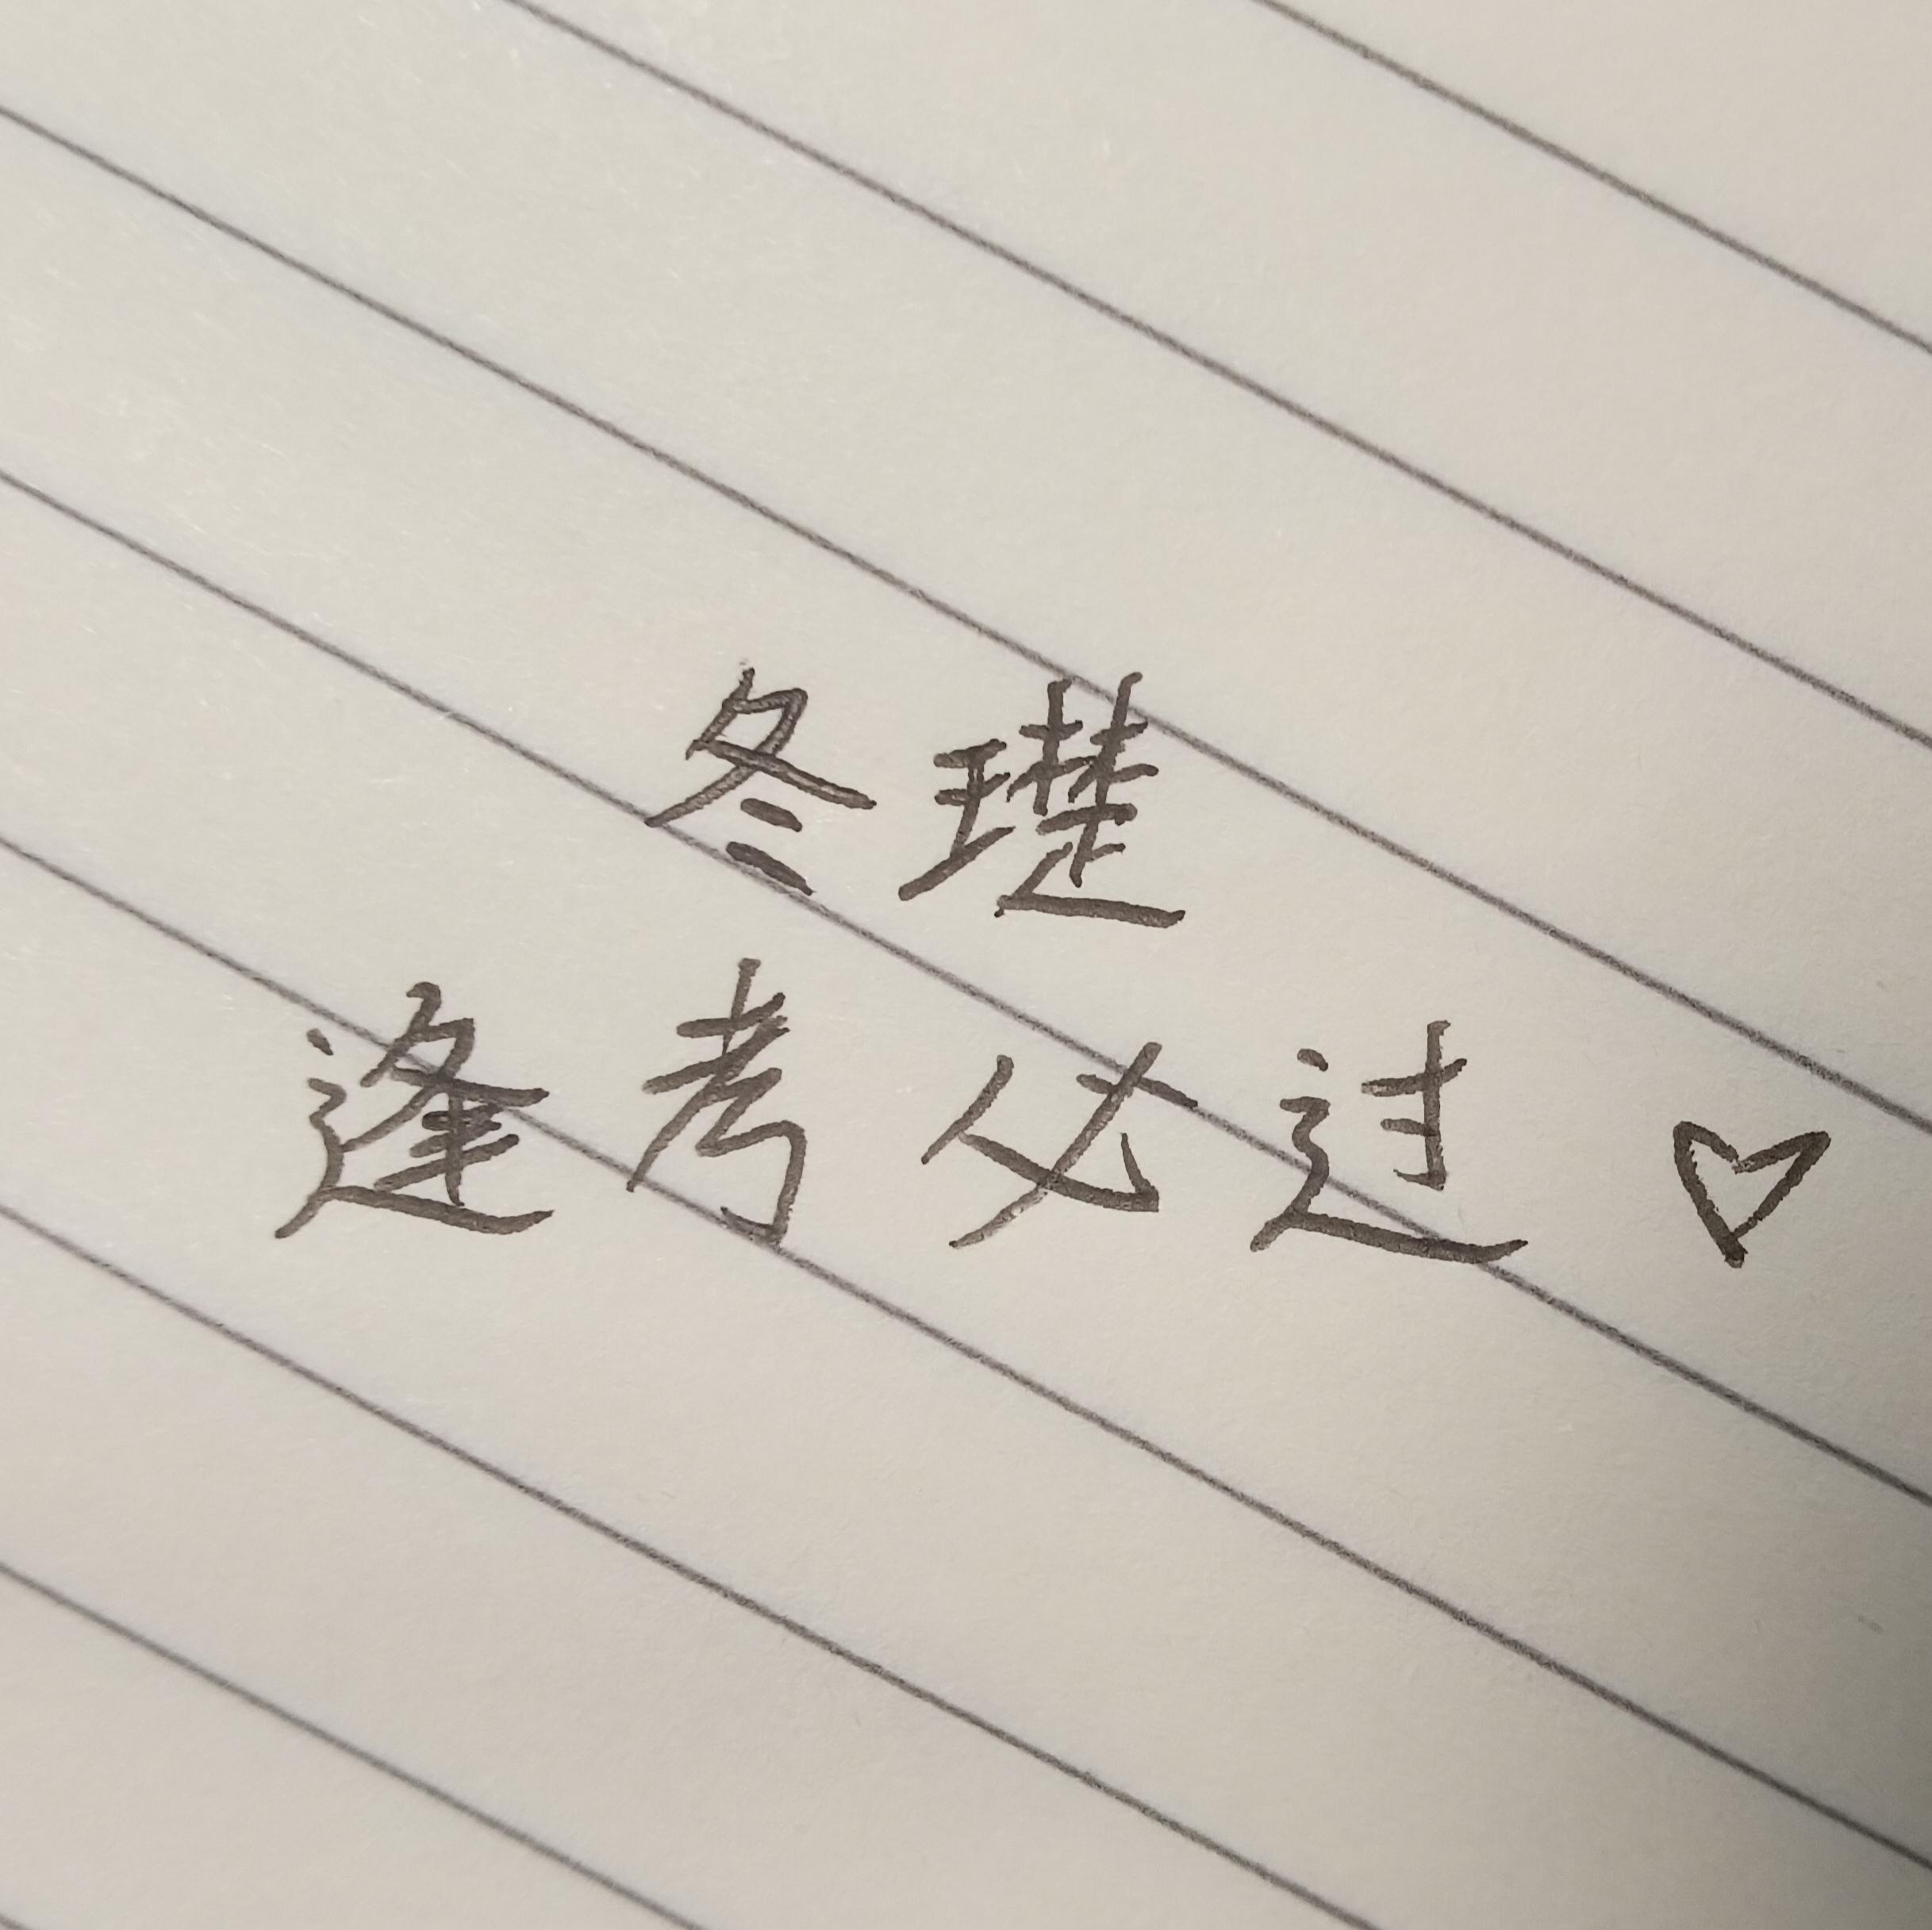 冬璴
逢考必过♡